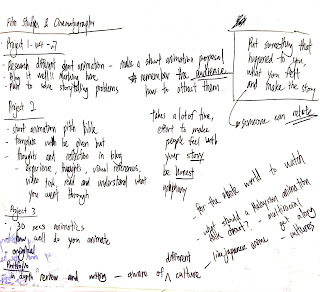 Film Studies & Cinematography
Project 1 - w1 - 7
- Research different short animation - make a short animation proposal
- Blog it well!! Marking here
* remember the audience
- point to solve storytelling problems
how to attract them
Put something that
happened to you,
what you felt
and make the story
someone can relate
Project 2
- short animation pitch bible
- template will be given but
- thoughts and reflection in blog
- experience, thoughts, visual references,
video, read and understand what
you went through
takes a lot of time,
effort to make
people feel with
your story
be honest
epiphany
for the whole world to watch
- what should a Malaysian animation
talk about? - multiracial
- like Japanese anime - got along
- cultures
Project 3
- 3D animatics
- how well do you animate
- original
- in depth review and writing - aware of different culture